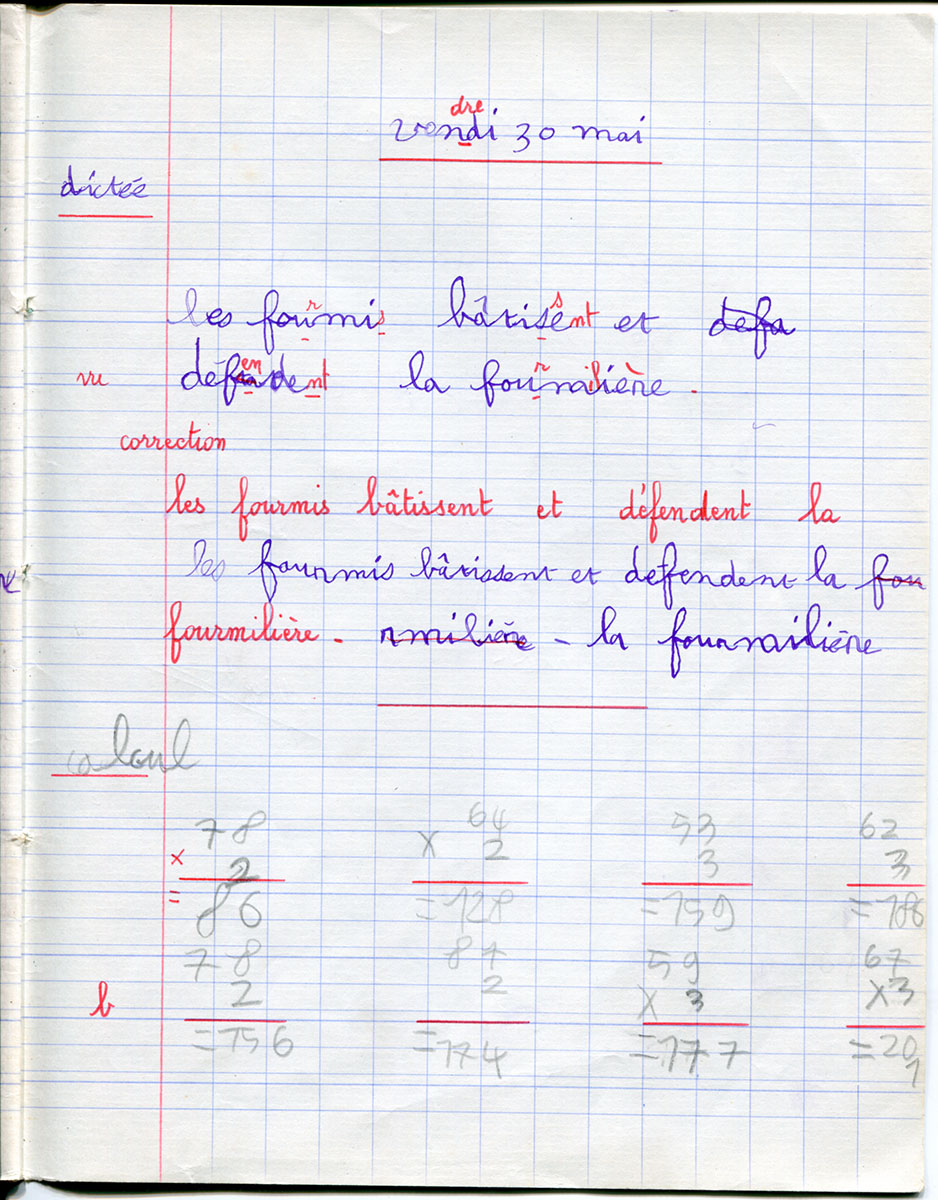 dre
vendi 30 mai
dictée
r s
les foumis bâtisent et defa
vu défendent la foumilière.
correction
les fourmis bâtissent et défendent la
les fourmis bâtissent et défendent la fou
fourmilière - rmilière - la fourmilière
calcul
78 64 53 62
x 2 x 2 3 3
= 86 = 128 = 159 = 186
78 87 59 67
b 2 2 x 3 x 3
= 156 = 174 = 177 = 201